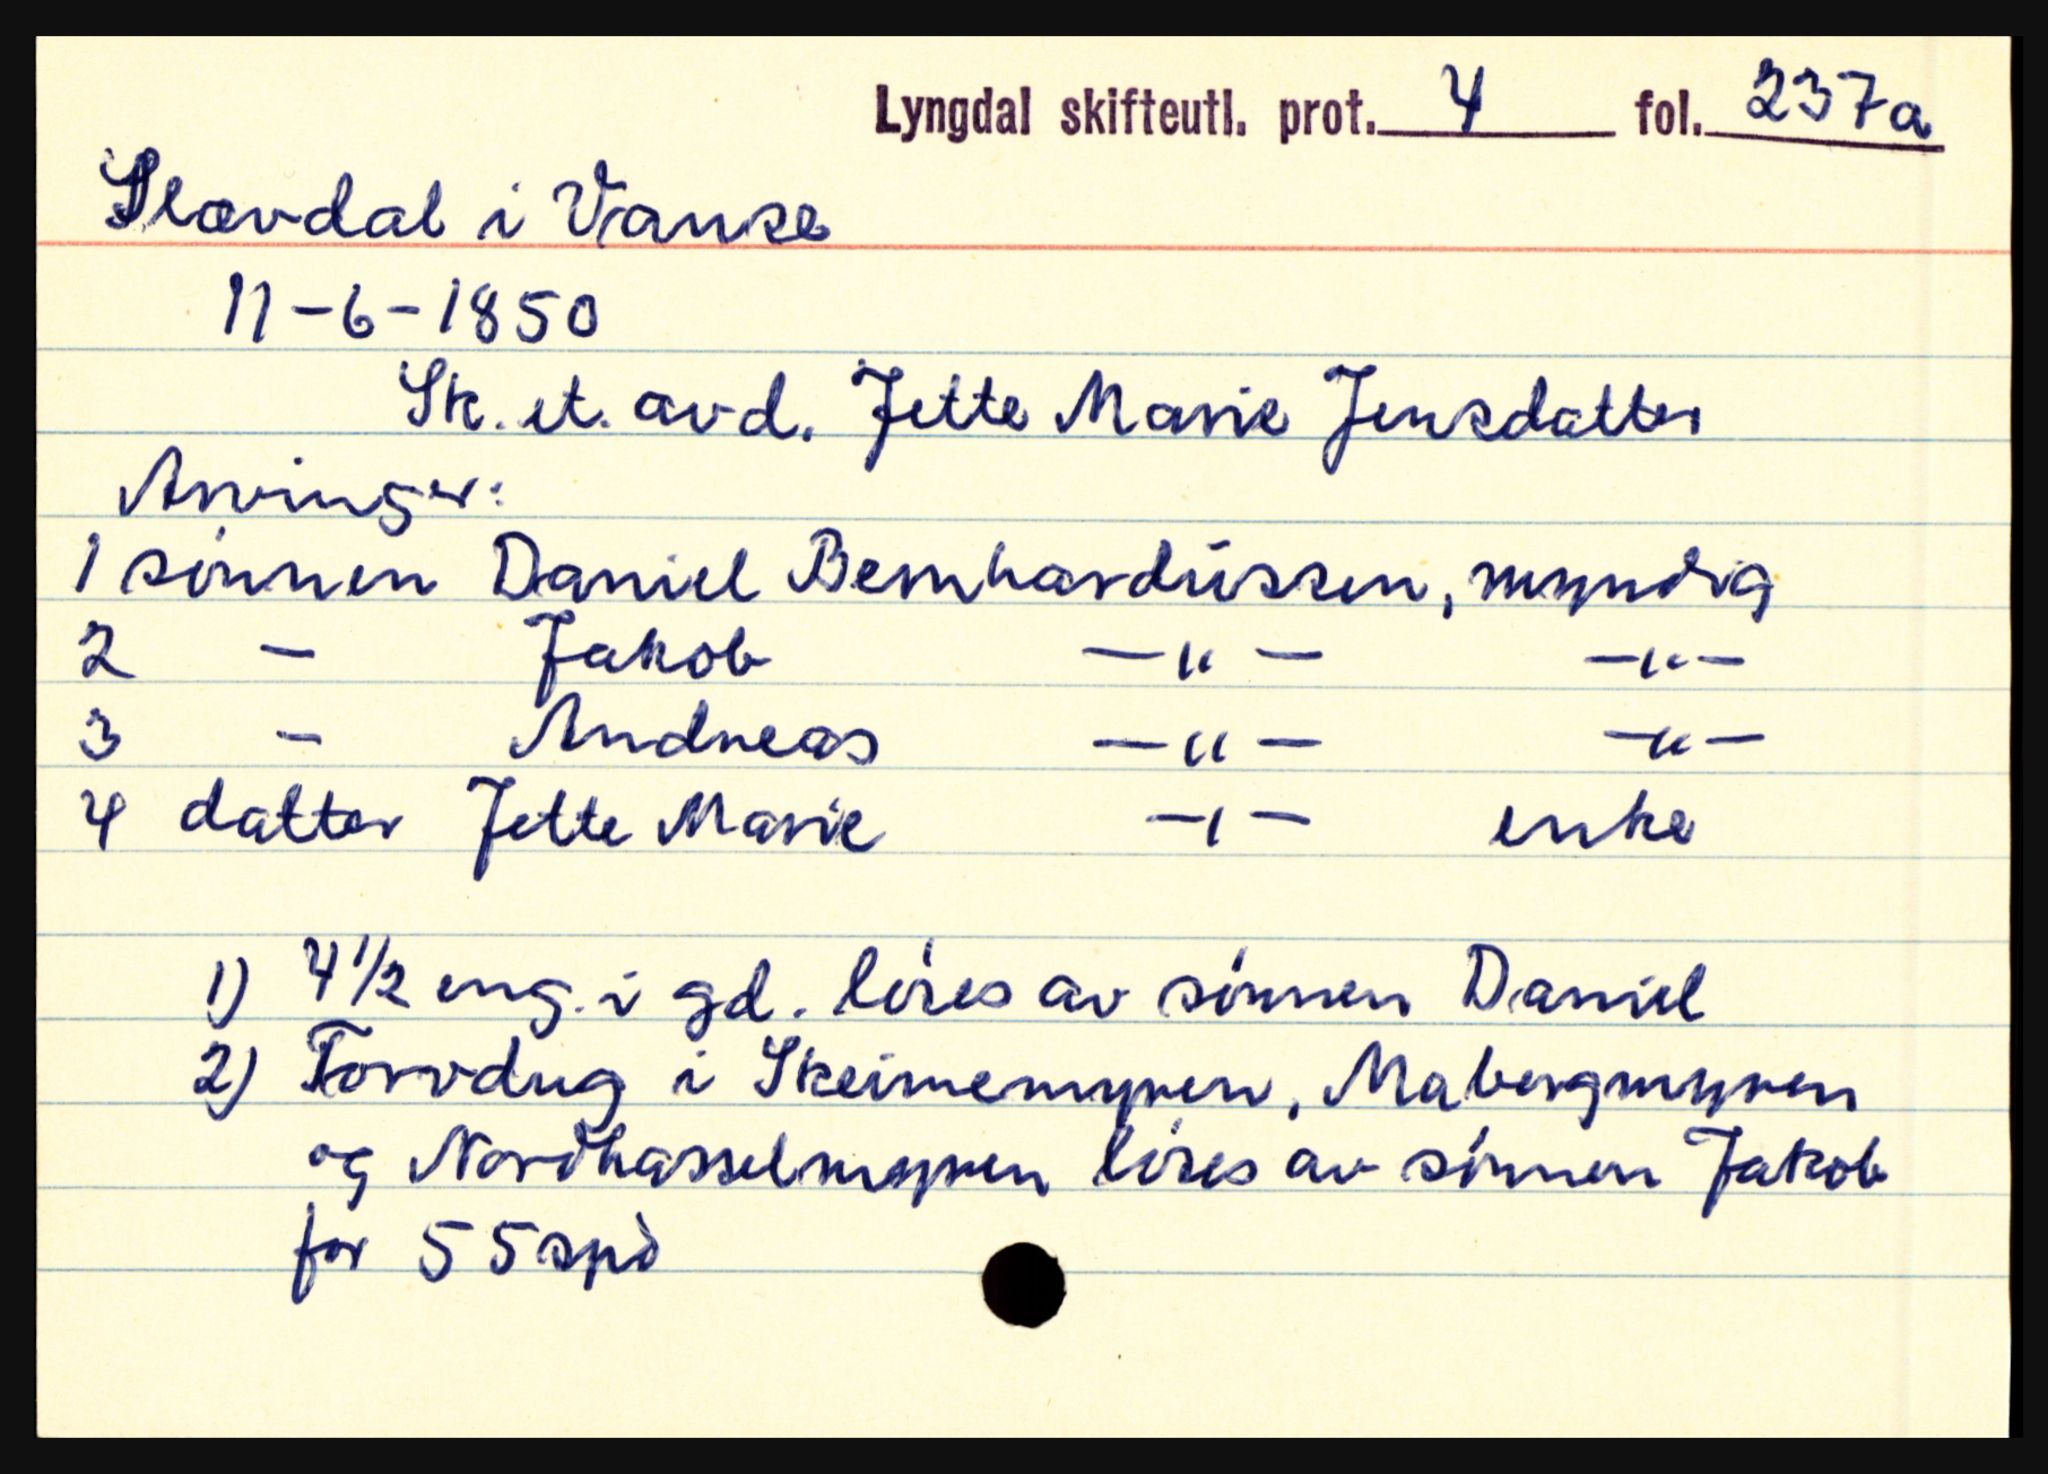 Lyngdal skifteutl. prot. 4 fol. 237a
Slævdal i Vanse
11-6-1850
Sk. et. avd. Jette Marie Jensdatter
Arvinger:
1 sønnen Daniel Bernhardussen, myndig
2 - Jakob -"- -"-
3 - Andreas -"- -"-
4 datter Jette Marie -"- enke
1) 4 1/2 eng. i gd. løses av sønnen Daniel
2) Torvdug i Skeimemyren, Mabergmyren
og Nordhasselmyren løses av sønnen Jakob
for 55 spd